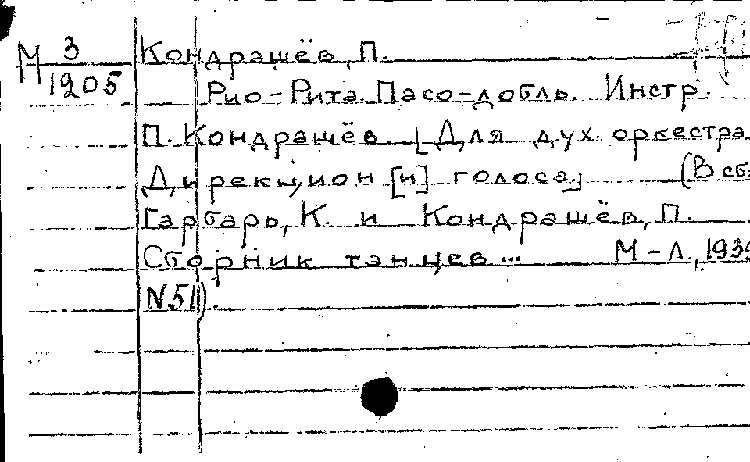 М 3 Кондрашёв, П.
М 1205 Рио-Рита. Пасо-добль. Инстр.
П. Кондрашёв [Для дух. оркестра
Дирекцион [и] голоса] (В сб.
Гарбарь, К. и Кондрашёв, П.
Сборник танцев... М-Л.,
N51).